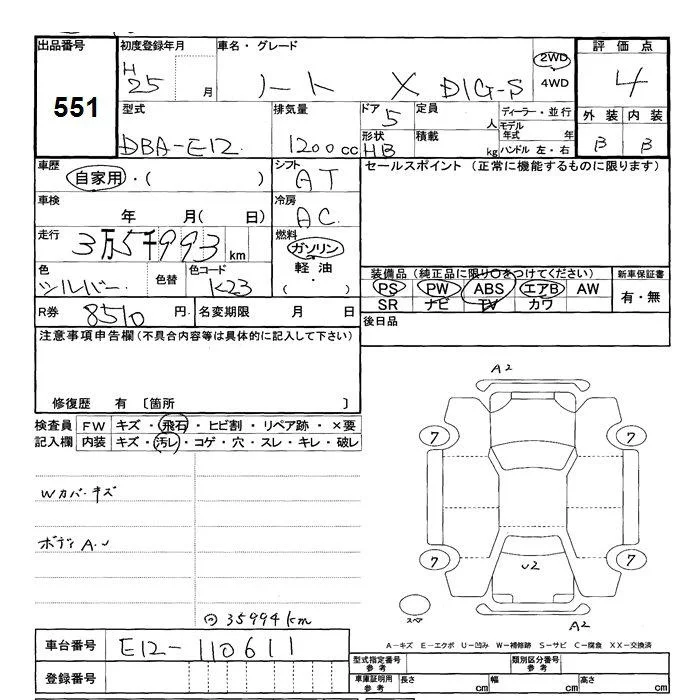 出品番号 初度登録年月 車名・グレード 2WD 評価点
551 H25 月 ノート X DIG-S 4WD 4
型式 排気量 ドア 定員 ディーラー・並行 外装 内装
DBA-E12 1200cc 5 人 モデル年式 年 B B
形状 HB 積載 kg ハンドル 左・右
車歴 自家用・( ) シフト AT セールスポイント (正常に機能するものに限ります)
車検 年 月( 日) 冷房 AC
走行 3万5千993km 燃料 ガソリン
軽油
・( )
色 シルバー 色替 色コード K23 装備品 (純正品に限り○をつけてください) 新車保証書
PS PW ABS エアB AW 有・無
SR ナビ TV カワ
R券 8510円 名変期限 月 日 後日品
注意事項申告欄(不具合内容等は具体的に記入して下さい)
修復歴 有 〔箇所 〕
検査員 FW キズ・飛石・ヒビ割・リペア跡・×要
記入欄 内装 キズ・汚レ・コゲ・穴・スレ・キレ・破レ
Wカバーキズ
ボディA.U
35994km
A2
7 7
7 7
U2
スペア
A2
A-キズ E-エクボ U-凹み W-補修跡 S-サビ C-腐食 XX-交換済
車台番号 E12-110611
登録番号
型式指定番号 参考 類別区分番号 参考
車庫証明用 参考 長さ cm 幅 cm 高さ cm